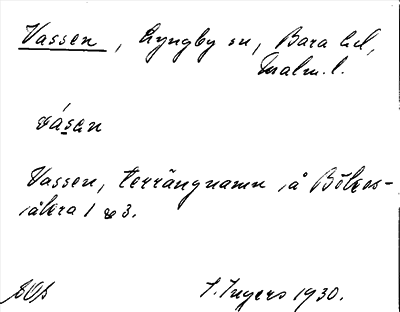 Vassen, Lyngby sn, Bara hd,
Malm. l.
vásen
Vassen, terrängnamn på Bökes-
åkra 1 o 3.
I. Ingers 1930.